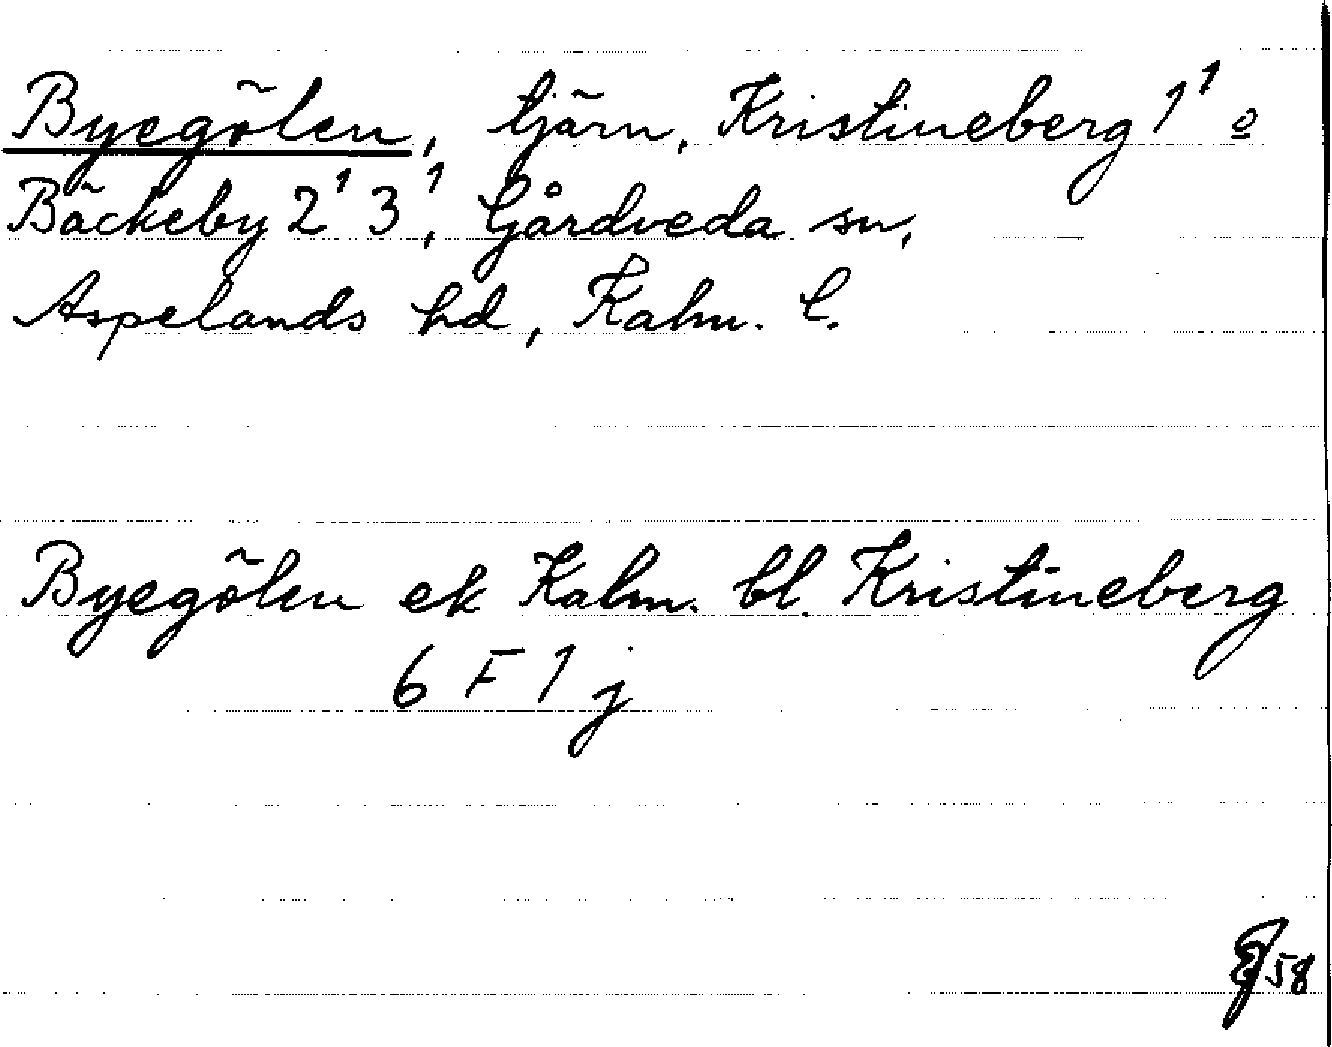 Byegölen, tjärn, Kristineberg 1¹ o
Bäckeby 2¹ 3¹, Gårdveda sn,
Aspelands hd, Kalm. l.
Byegölen ek Kalm. bl. Kristineberg
6 F 1 j
58